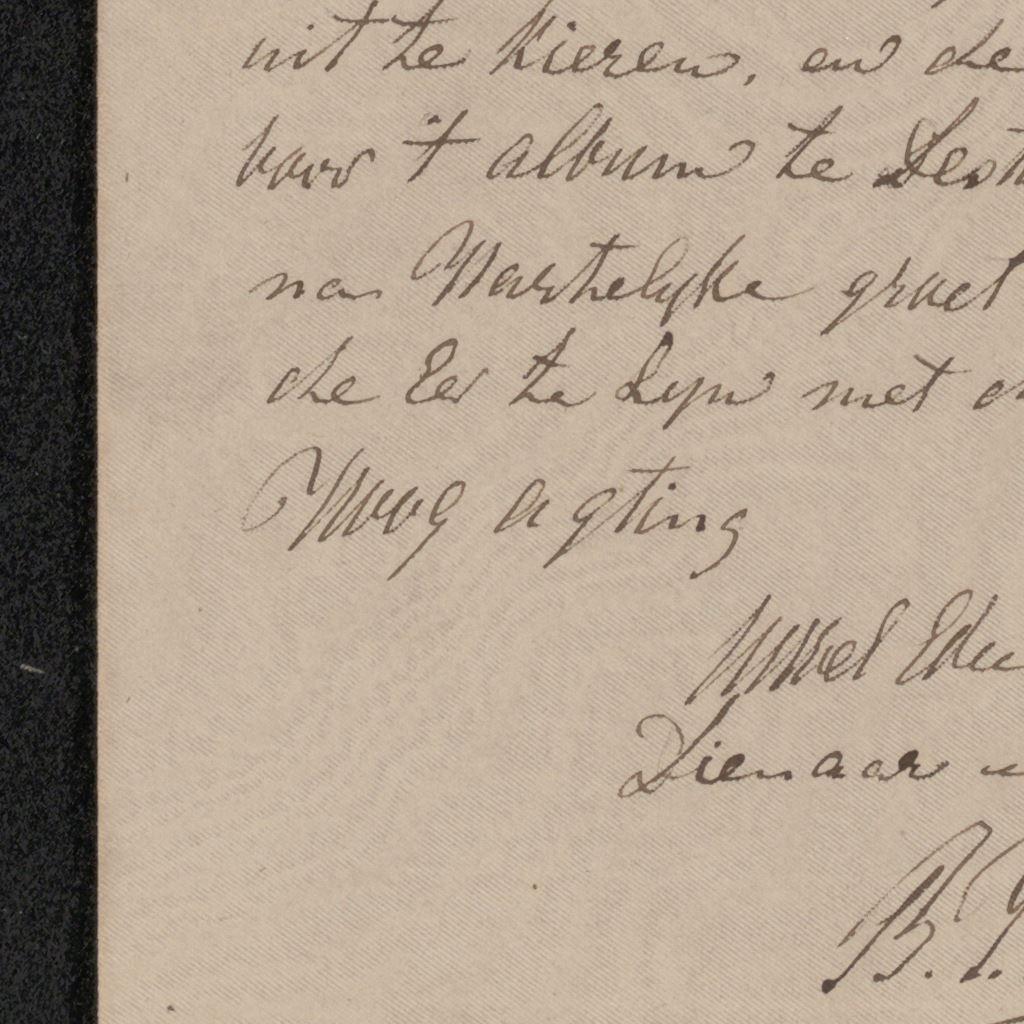 uit te kieren, en de
voor 't album te Best
na Hartelyke groet
de Eer te zyn met
Hoog agting
UWwel Edu
Dienaar
B.